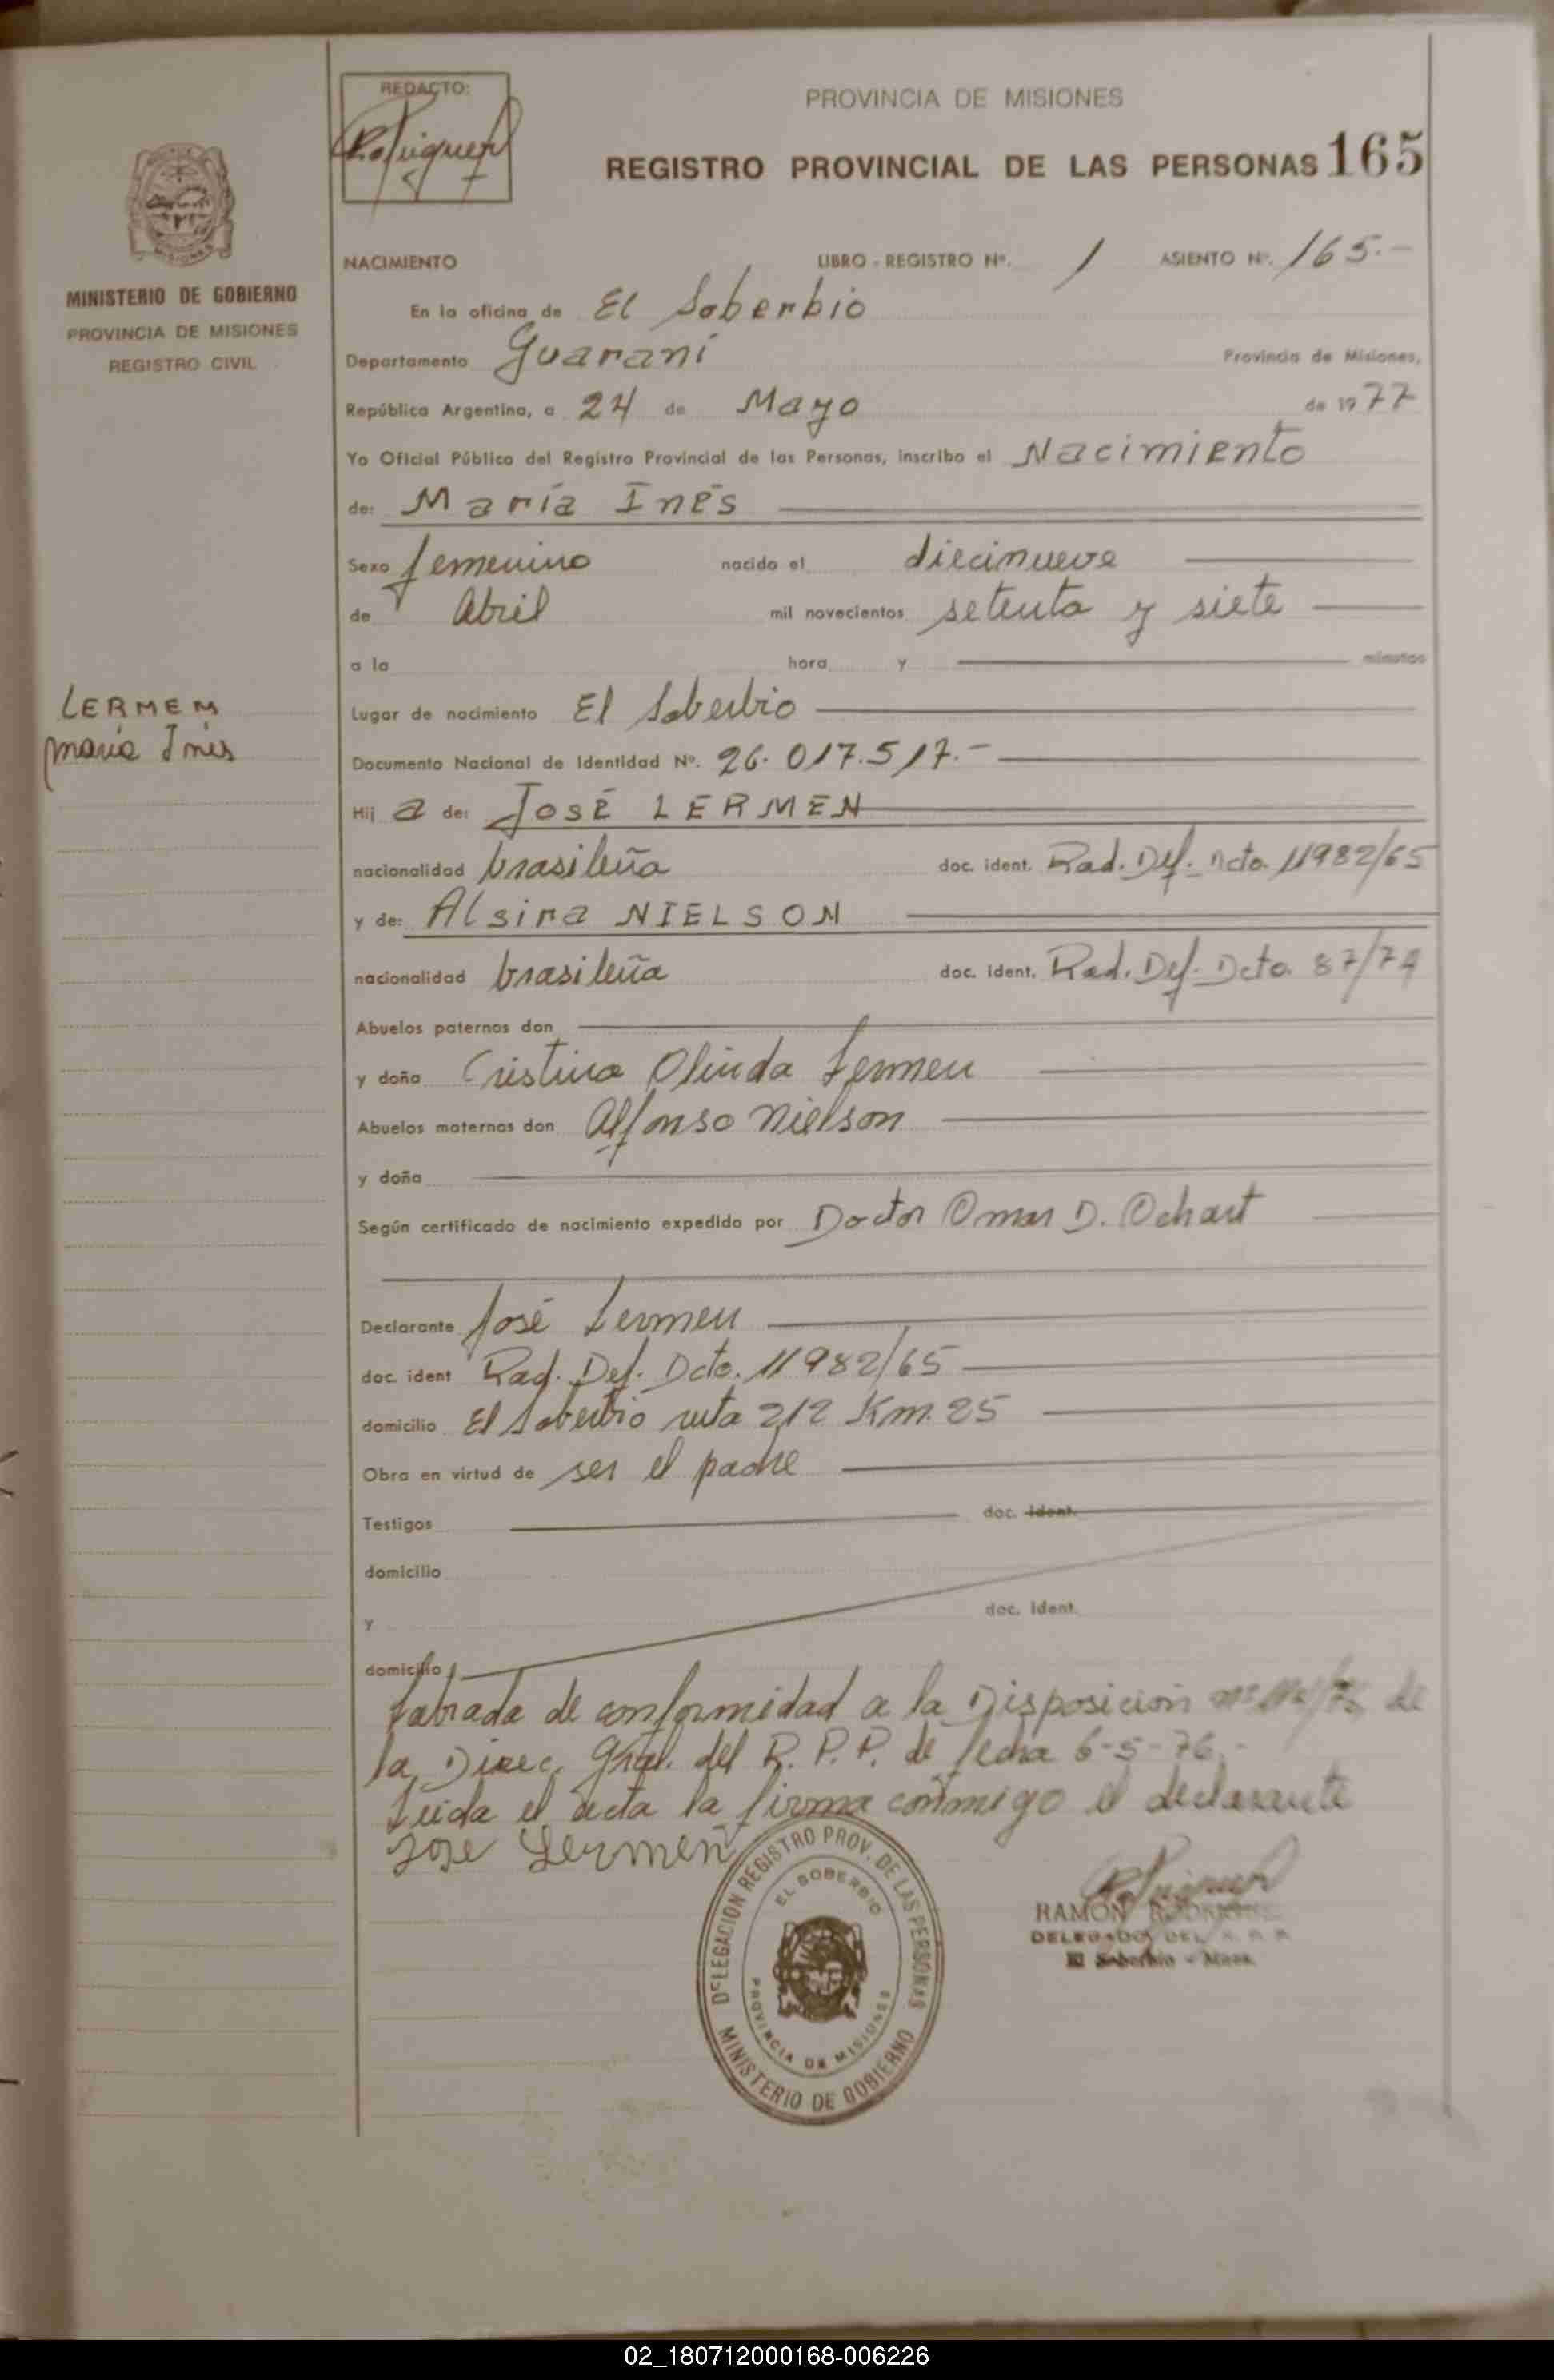 REDACTO:
PROVINCIA DE MISIONES
REGISTRO PROVINCIAL DE LAS PERSONAS 165
MINISTERIO DE GOBIERNO
PROVINCIA DE MISIONES
REGISTRO CIVIL
NACIMIENTO LIBRO - REGISTRO Nº. 1 ASIENTO Nº. 165.-
En la oficina de El Soberbio
Departamento Guaraní Provincia de Misiones,
República Argentina, a 24 de Mayo de 1977
Yo Oficial Público del Registro Provincial de las Personas, inscribo el Nacimiento
de: María Inés
Sexo femenino nacido el diecinueve
de Abril mil novecientos setenta y siete
a la hora y minutos
LERMEN
María Inés
Lugar de nacimiento El Soberbio
Documento Nacional de Identidad Nº. 26.017.517.-
Hij a de: José LERMEN
nacionalidad brasileña doc. ident. Rad. Def. Dcto. 11982/65
y de: Alsira NIELSON
nacionalidad brasileña doc. ident. Rad. Def. Dcto. 87/74
Abuelos paternos don
y doña Cristina Olinda Lermen
Abuelos maternos don Alfonso Nielson
y doña
Según certificado de nacimiento expedido por Doctor Omar D. Ochart
Declarante José Lermen
doc. ident Rad. Def. Dcto. 11982/65
domicilio El Soberbio ruta 212 Km. 25
Obra en virtud de ser el padre
Testigos doc. ident.
domicilio
y doc. ident.
domicilio
Labrada de conformidad a la Disposición de
la Direc. Gral. del R. P. P. de fecha 6-5-76.-
Leída el acta la firma conmigo el declarante
Jose Lermen
DELEGACION REGISTRO PROV. DE LAS PERSONAS
EL SOBERBIO
PROVINCIA DE MISIONES
MINISTERIO DE GOBIERNO
RAMON RODRIGUEZ
DELEGADO DEL R. P. P.
El Soberbio - Mnes.
02_180712000168-006226